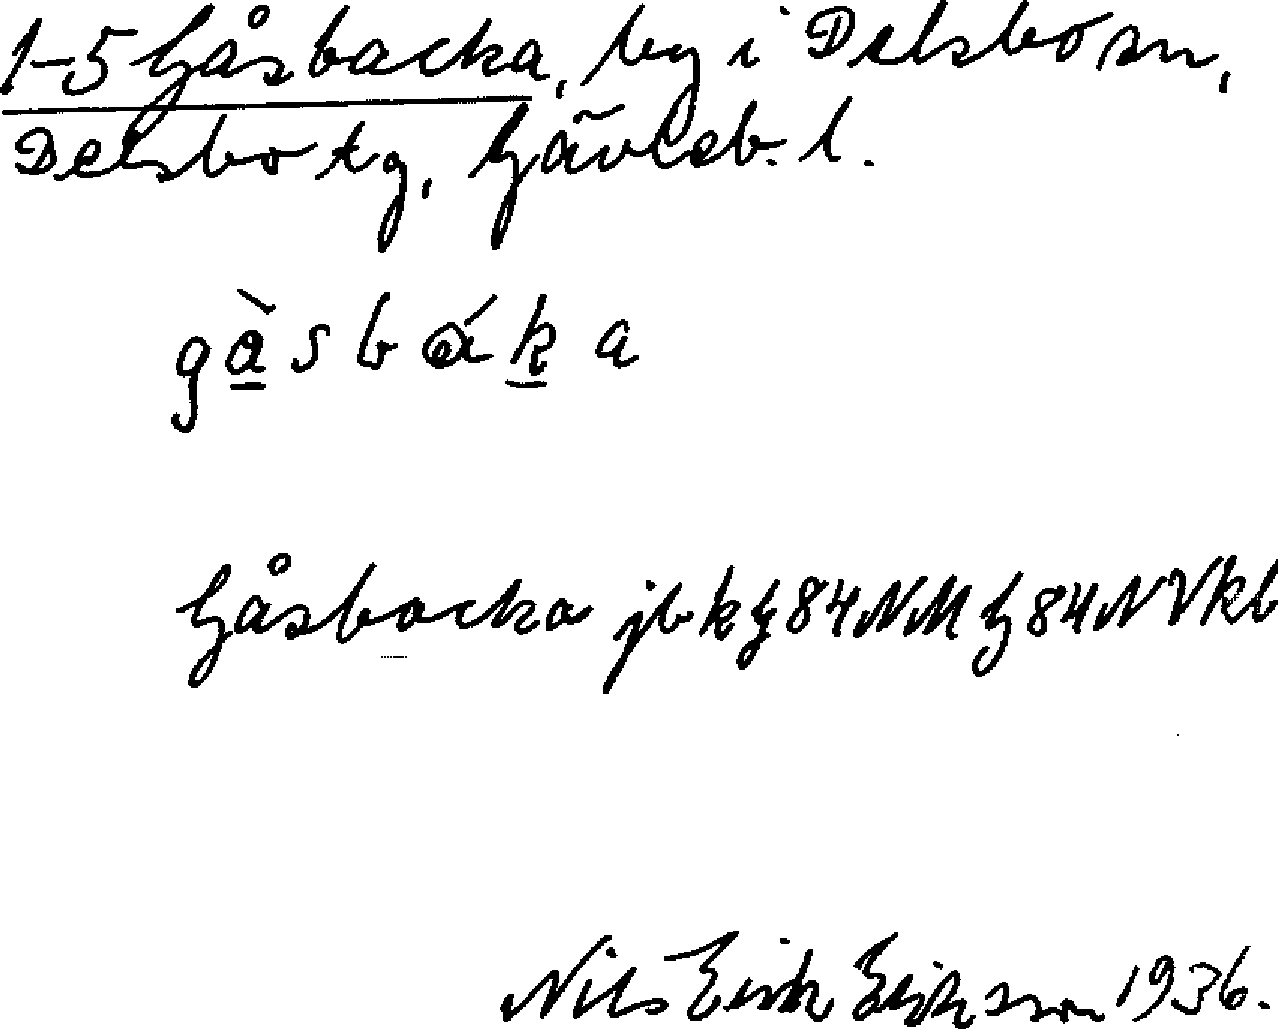 1-5 Gåsbacka, by i Delsbo sn,
Delsbo tg, Gävleb. l.
gàsbáka
Gåsbacka jb k g 84 NM G 84 NV kb
Nils Erik Eriksson 1936.